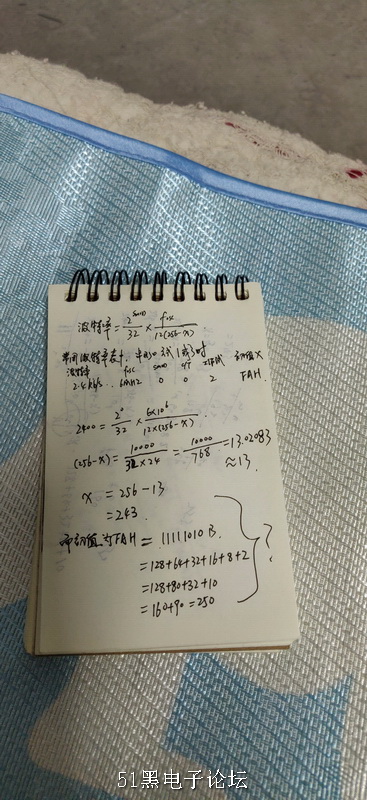 波特率 = 2^SMOD/32 × fosc/12(256-x)
常用波特率表中, 串口 方式1或3时
波特率 fosc SMOD C/T 方式 初值X
2.4kb/s 6MHZ 0 0 2 FAH.
2400 = 2^0/32 × 6×10^6/12×(256-x).
(256-x) = 10000/32×24 = 10000/768 = 13.02083
≈13.
x = 256-13
= 243.
而初值为FAH = 11111010 B.
= 128+64+32+16+8+2
= 128+80+32+10
= 160+90 = 250
?
51黑电子论坛